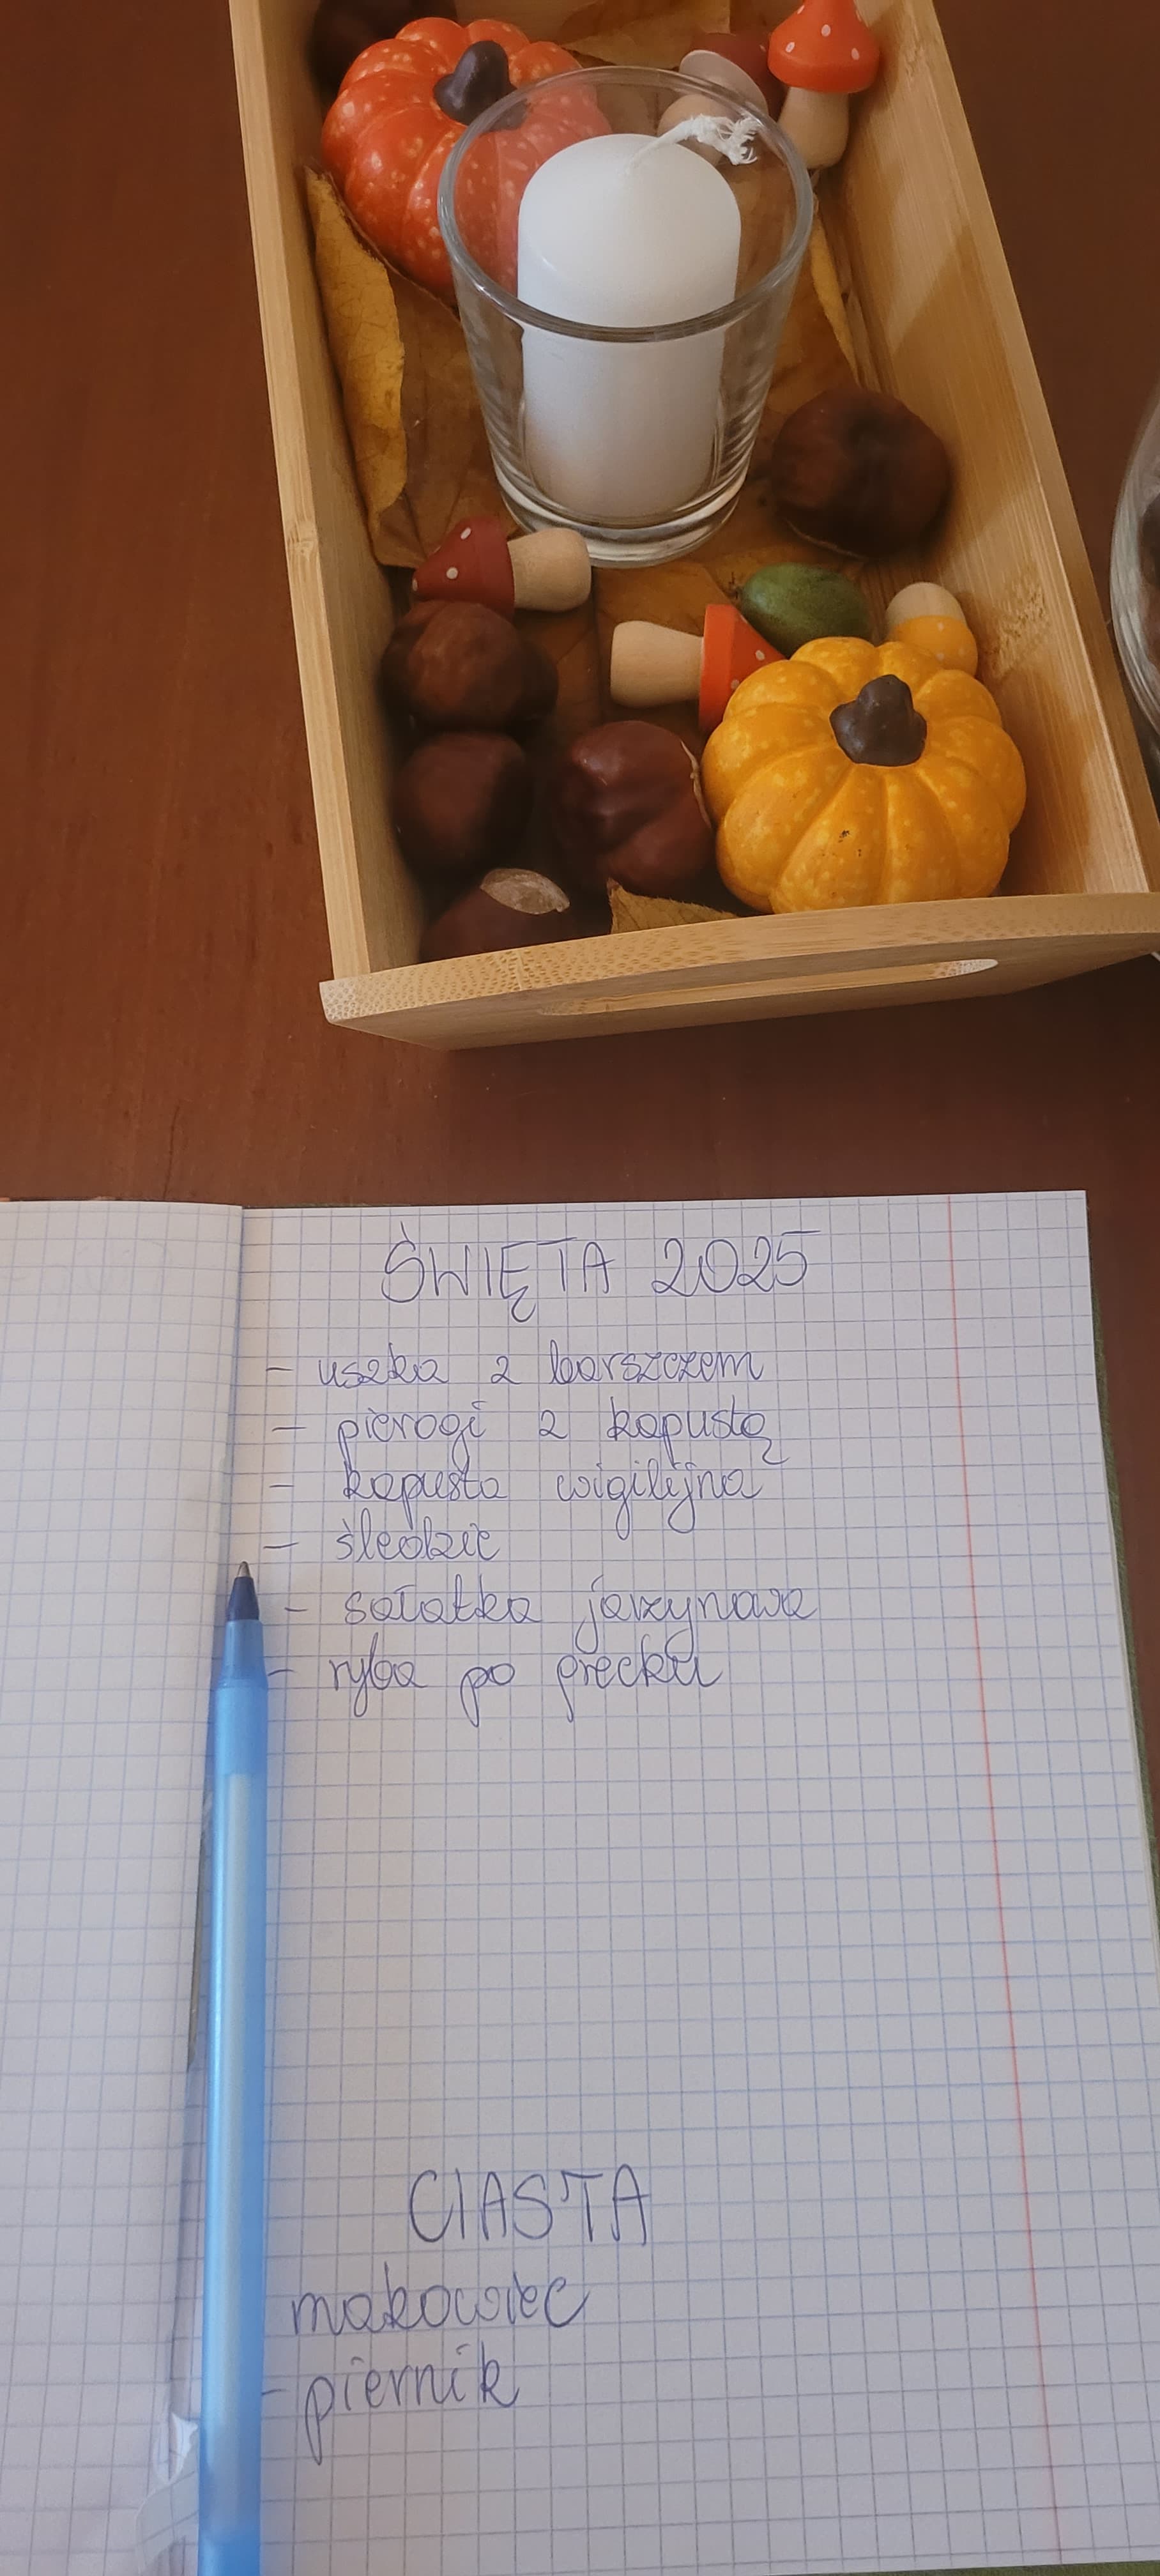 ŚWIĘTA 2025
- uszka z barszczem
- pierogi z kapustą
- kapusta wigilijna
- śledzie
- sałatka jarzynowa
- ryba po grecku
CIASTA
makowiec
- piernik